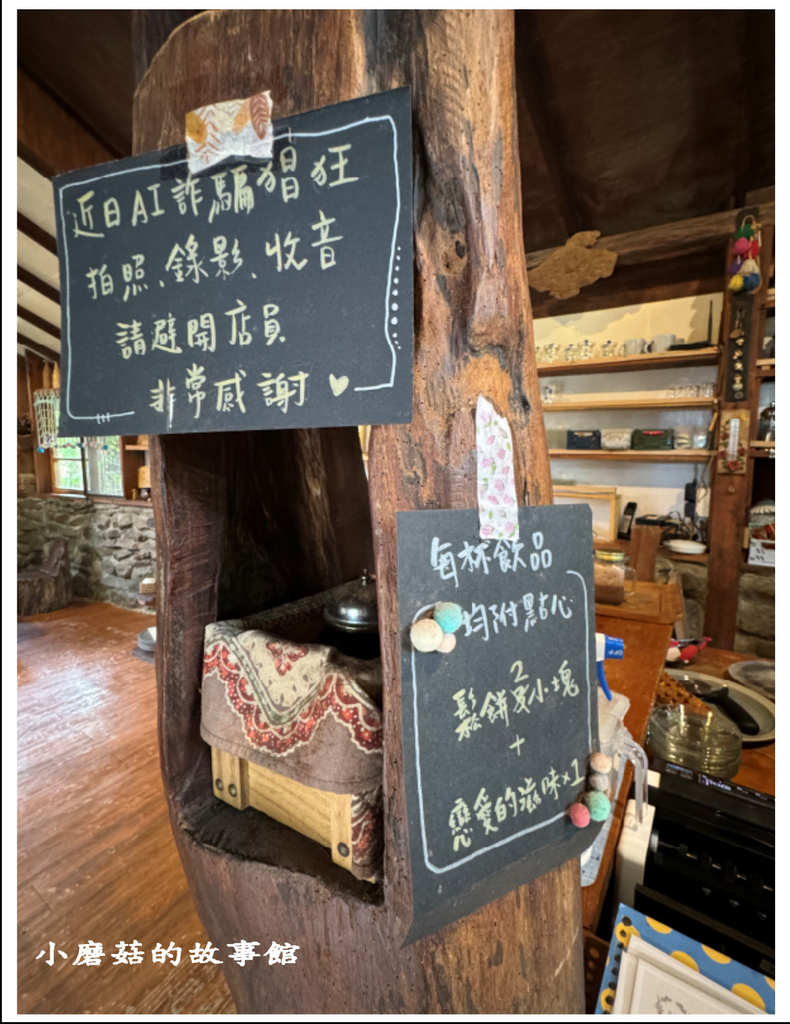 近日AI詐騙猖狂
拍照、錄影、收音
請避開店員
非常感謝
每杯飲品
均附點心
鬆餅2小塊
+
戀愛的滋味x1
OFF
小磨菇的故事館